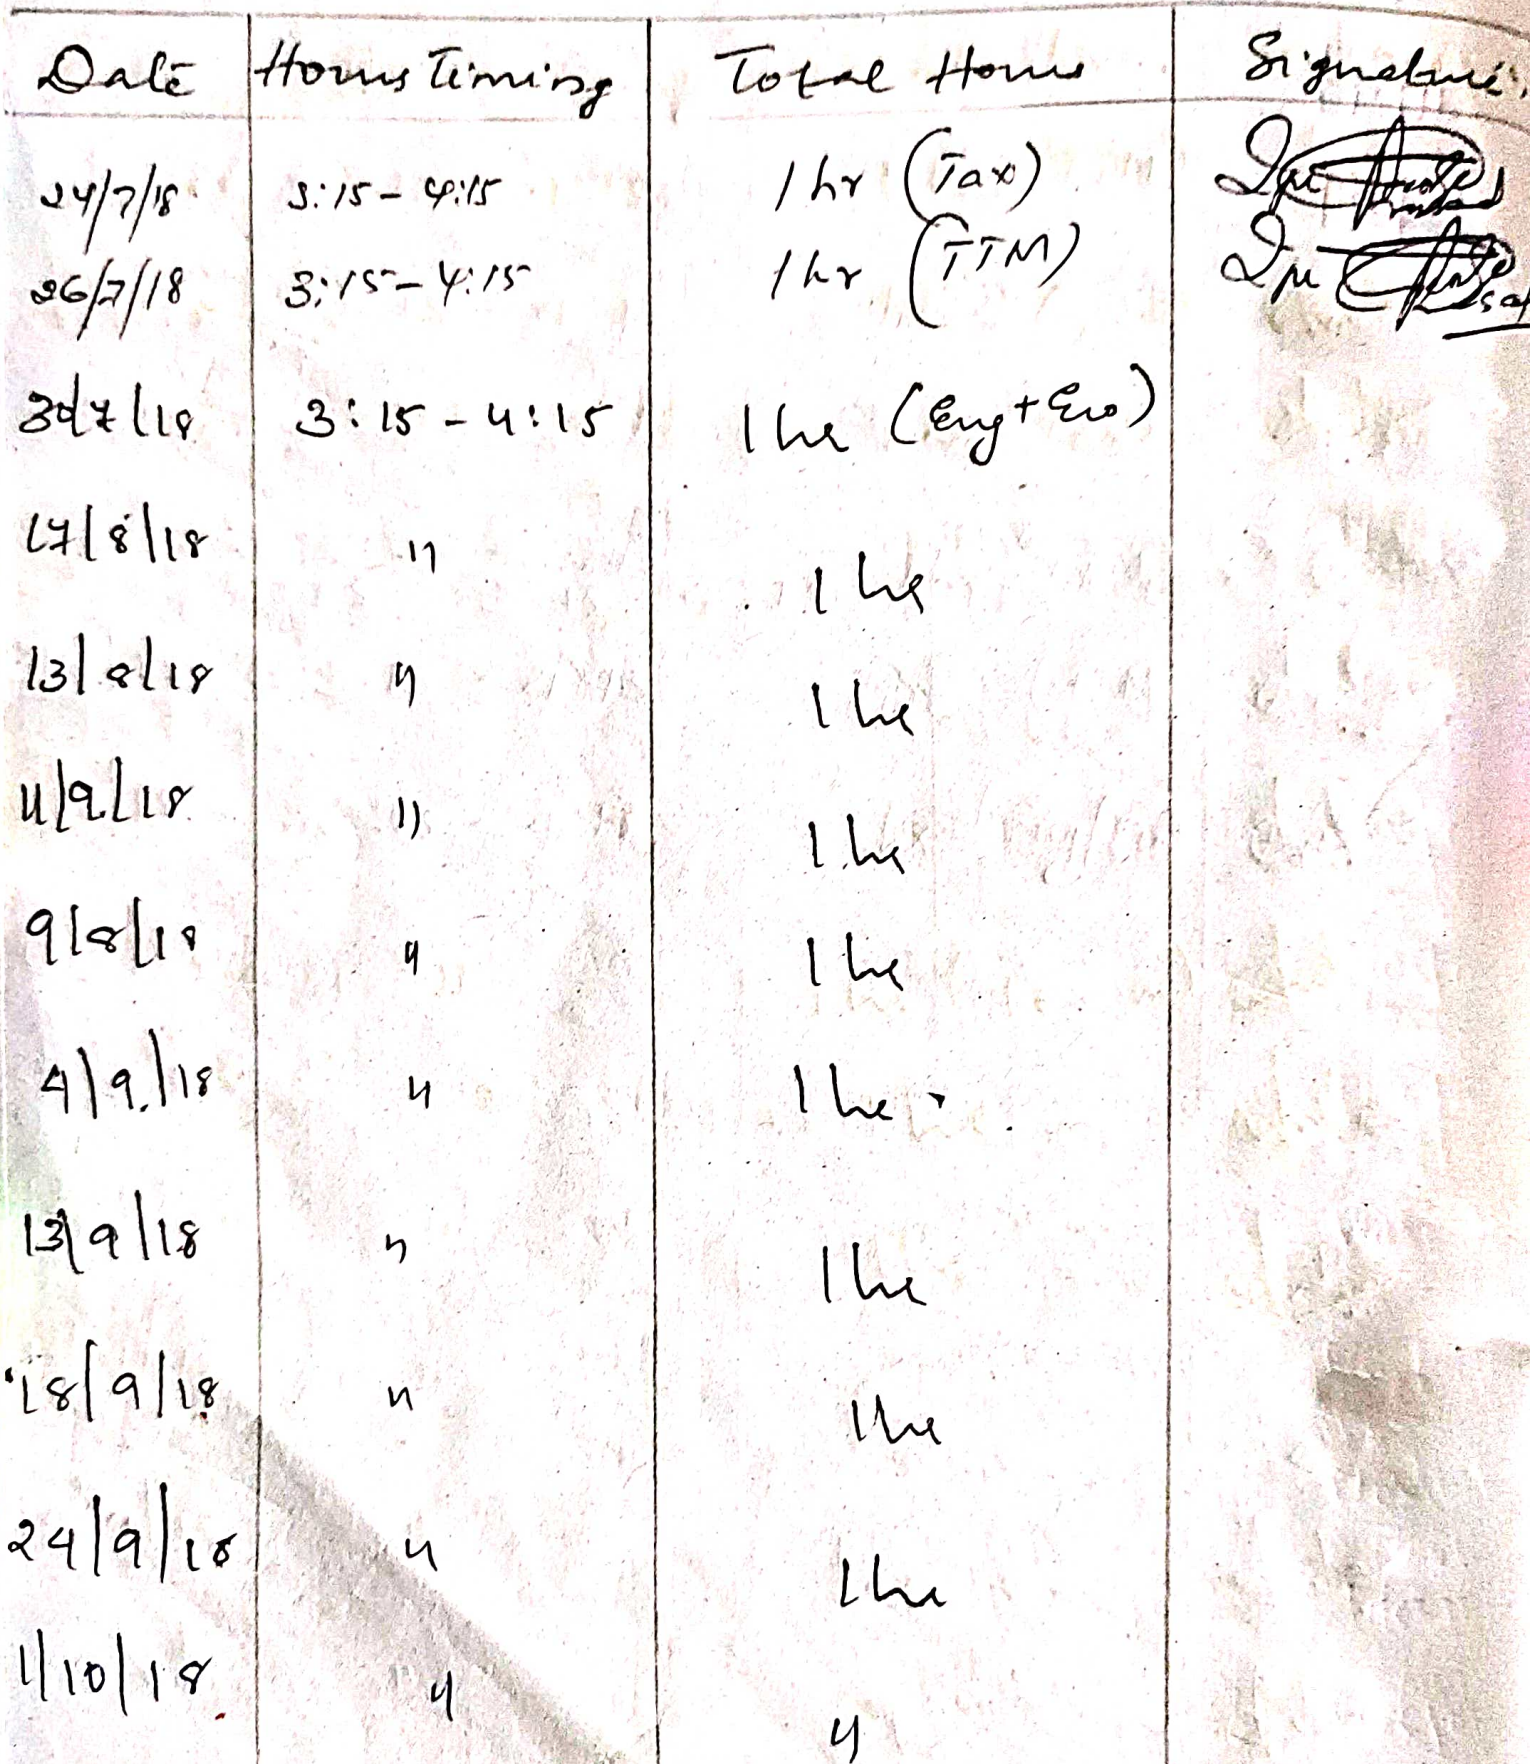 Date Hours Timing Total Hours Signature
24/7/18 3:15 - 4:15 1 hr (Tax)
26/7/18 3:15 - 4:15 1 hr (TTM)
30/7/18 3:15 - 4:15 1 hr (Eng + Eco)
17/8/18 " 1 hr
13/8/18 " 1 hr
11/9/18 " 1 hr
9/8/18 " 1 hr
4/9/18 " 1 hr
13/9/18 " 1 hr
18/9/18 " 1 hr
24/9/18 " 1 hr
1/10/18 " "